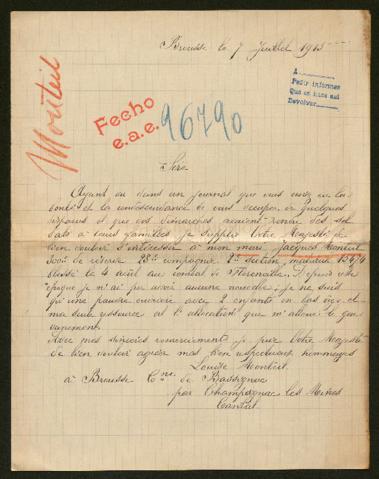 Brousse le 7 Juillet 1915
Monteil
A
Pedir informes
Que se hizo así
Devolver
Fecho
e.a.e.
96790
Sire
Ayant vu dans un journal que vous avez eu la
bonté et la condescendance de vous occuper de quelques
disparus et que vos démarches avaient rendu des sol
dats à leurs familles je supplie Votre Majesté de
bien vouloir s'intéresser à mon mari Jacques Monteil
de réserve 28e compagnie 2e section, matricule
blessé le 4 août au combat de Depuis cette
époque je n'ai pu avoir aucune nouvelle. Je ne suis
qu'une pauvre ouvrière avec 2 enfants en bas âge et
ma seule ressource est l'allocation que m'alloue le gou
vernement.
Avec mes sincères remerciements je prie Votre Majesté
de bien vouloir agréer mes bien respectueux hommages
Louise Monteil
à Brousse Cne de Bassignac
par Champagnac les Mines
Cantal